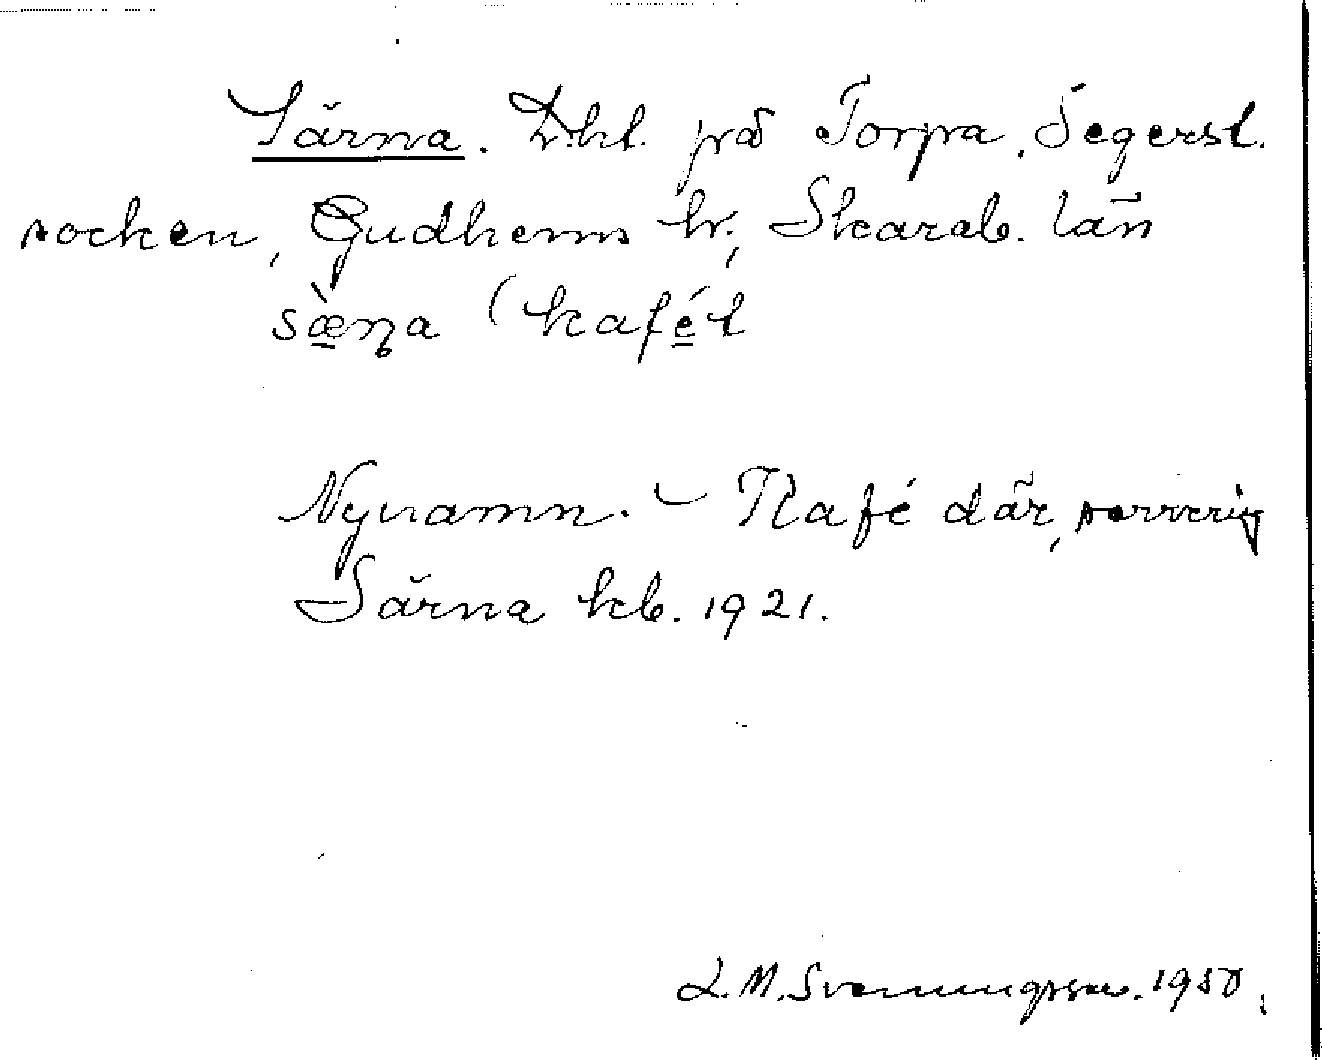 Särna. Lht. på Torpa, Segerst.
socken, Gudhems hr, Skarab. län
sæ̀ṇa (kafét
Nynamn. – Kafé där, servering
Särna kb. 1921.
L.M. Svenungsson. 1950.